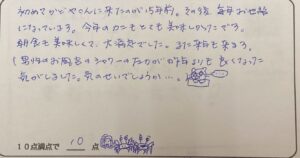 初めてかどやさんに来たのが15年前。その後、毎年お世話
になっています。今年のカニもとても美味しかったです。
朝食も美味しくて、大満足でした。また来年も来ます。
(男湯のお風呂のシャワーのたかが昨年よりも良くなった
気がしました。気のせいでしょうか…。
10点満点で 10 点